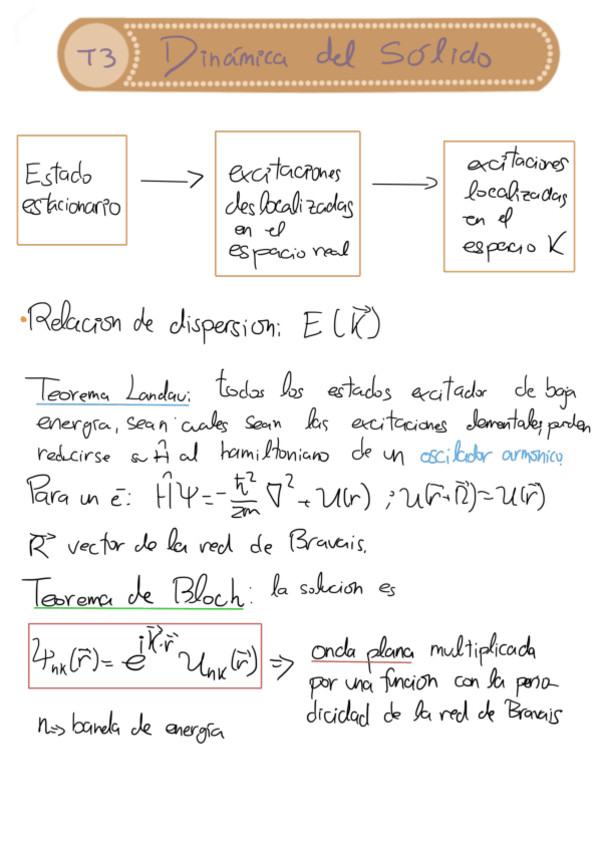 T3 Dinámica del Sólido
Estado
estacionario
excitaciones
deslocalizadas
en el
espacio real
excitaciones
localizadas
en el
espacio K
• Relación de dispersion: E(K⃗)
Teorema Landau: todos los estados excitador de baja
energía, sean cuales sean las excitaciones elementales, pueden
reducirse a Ĥ al hamiltoniano de un oscilador armónico.
Para un ē: ĤΨ=-ℏ²/2m ∇² + U(r) ; U(r⃗+R⃗)=U(r⃗)
R⃗ vector de la red de Bravais.
Teorema de Bloch: la solución es
Ψnk(r⃗)= e^{iK⃗·r⃗} Unk(r⃗) ⇒ onda plana multiplicada
por una función con la perio
dicidad de la red de Bravais
n ⇒ banda de energía